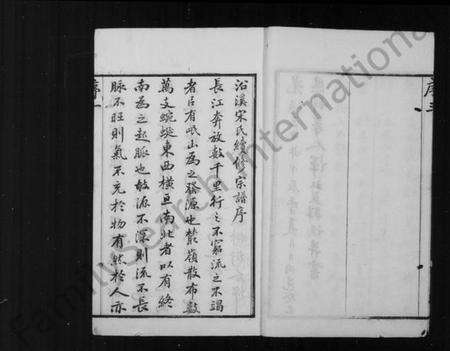 沿溪宋氏續修宗譜序
長江奔放數千里行之不窮流之不竭
者以有岷山為之發源也叢嶺散布數
萬支蜿蜒東西橫亘南北者以有終
南為之起脈也故源不深則流不長
脈不旺則氣不充於物有然於人亦
序
序三
FamilySearch International